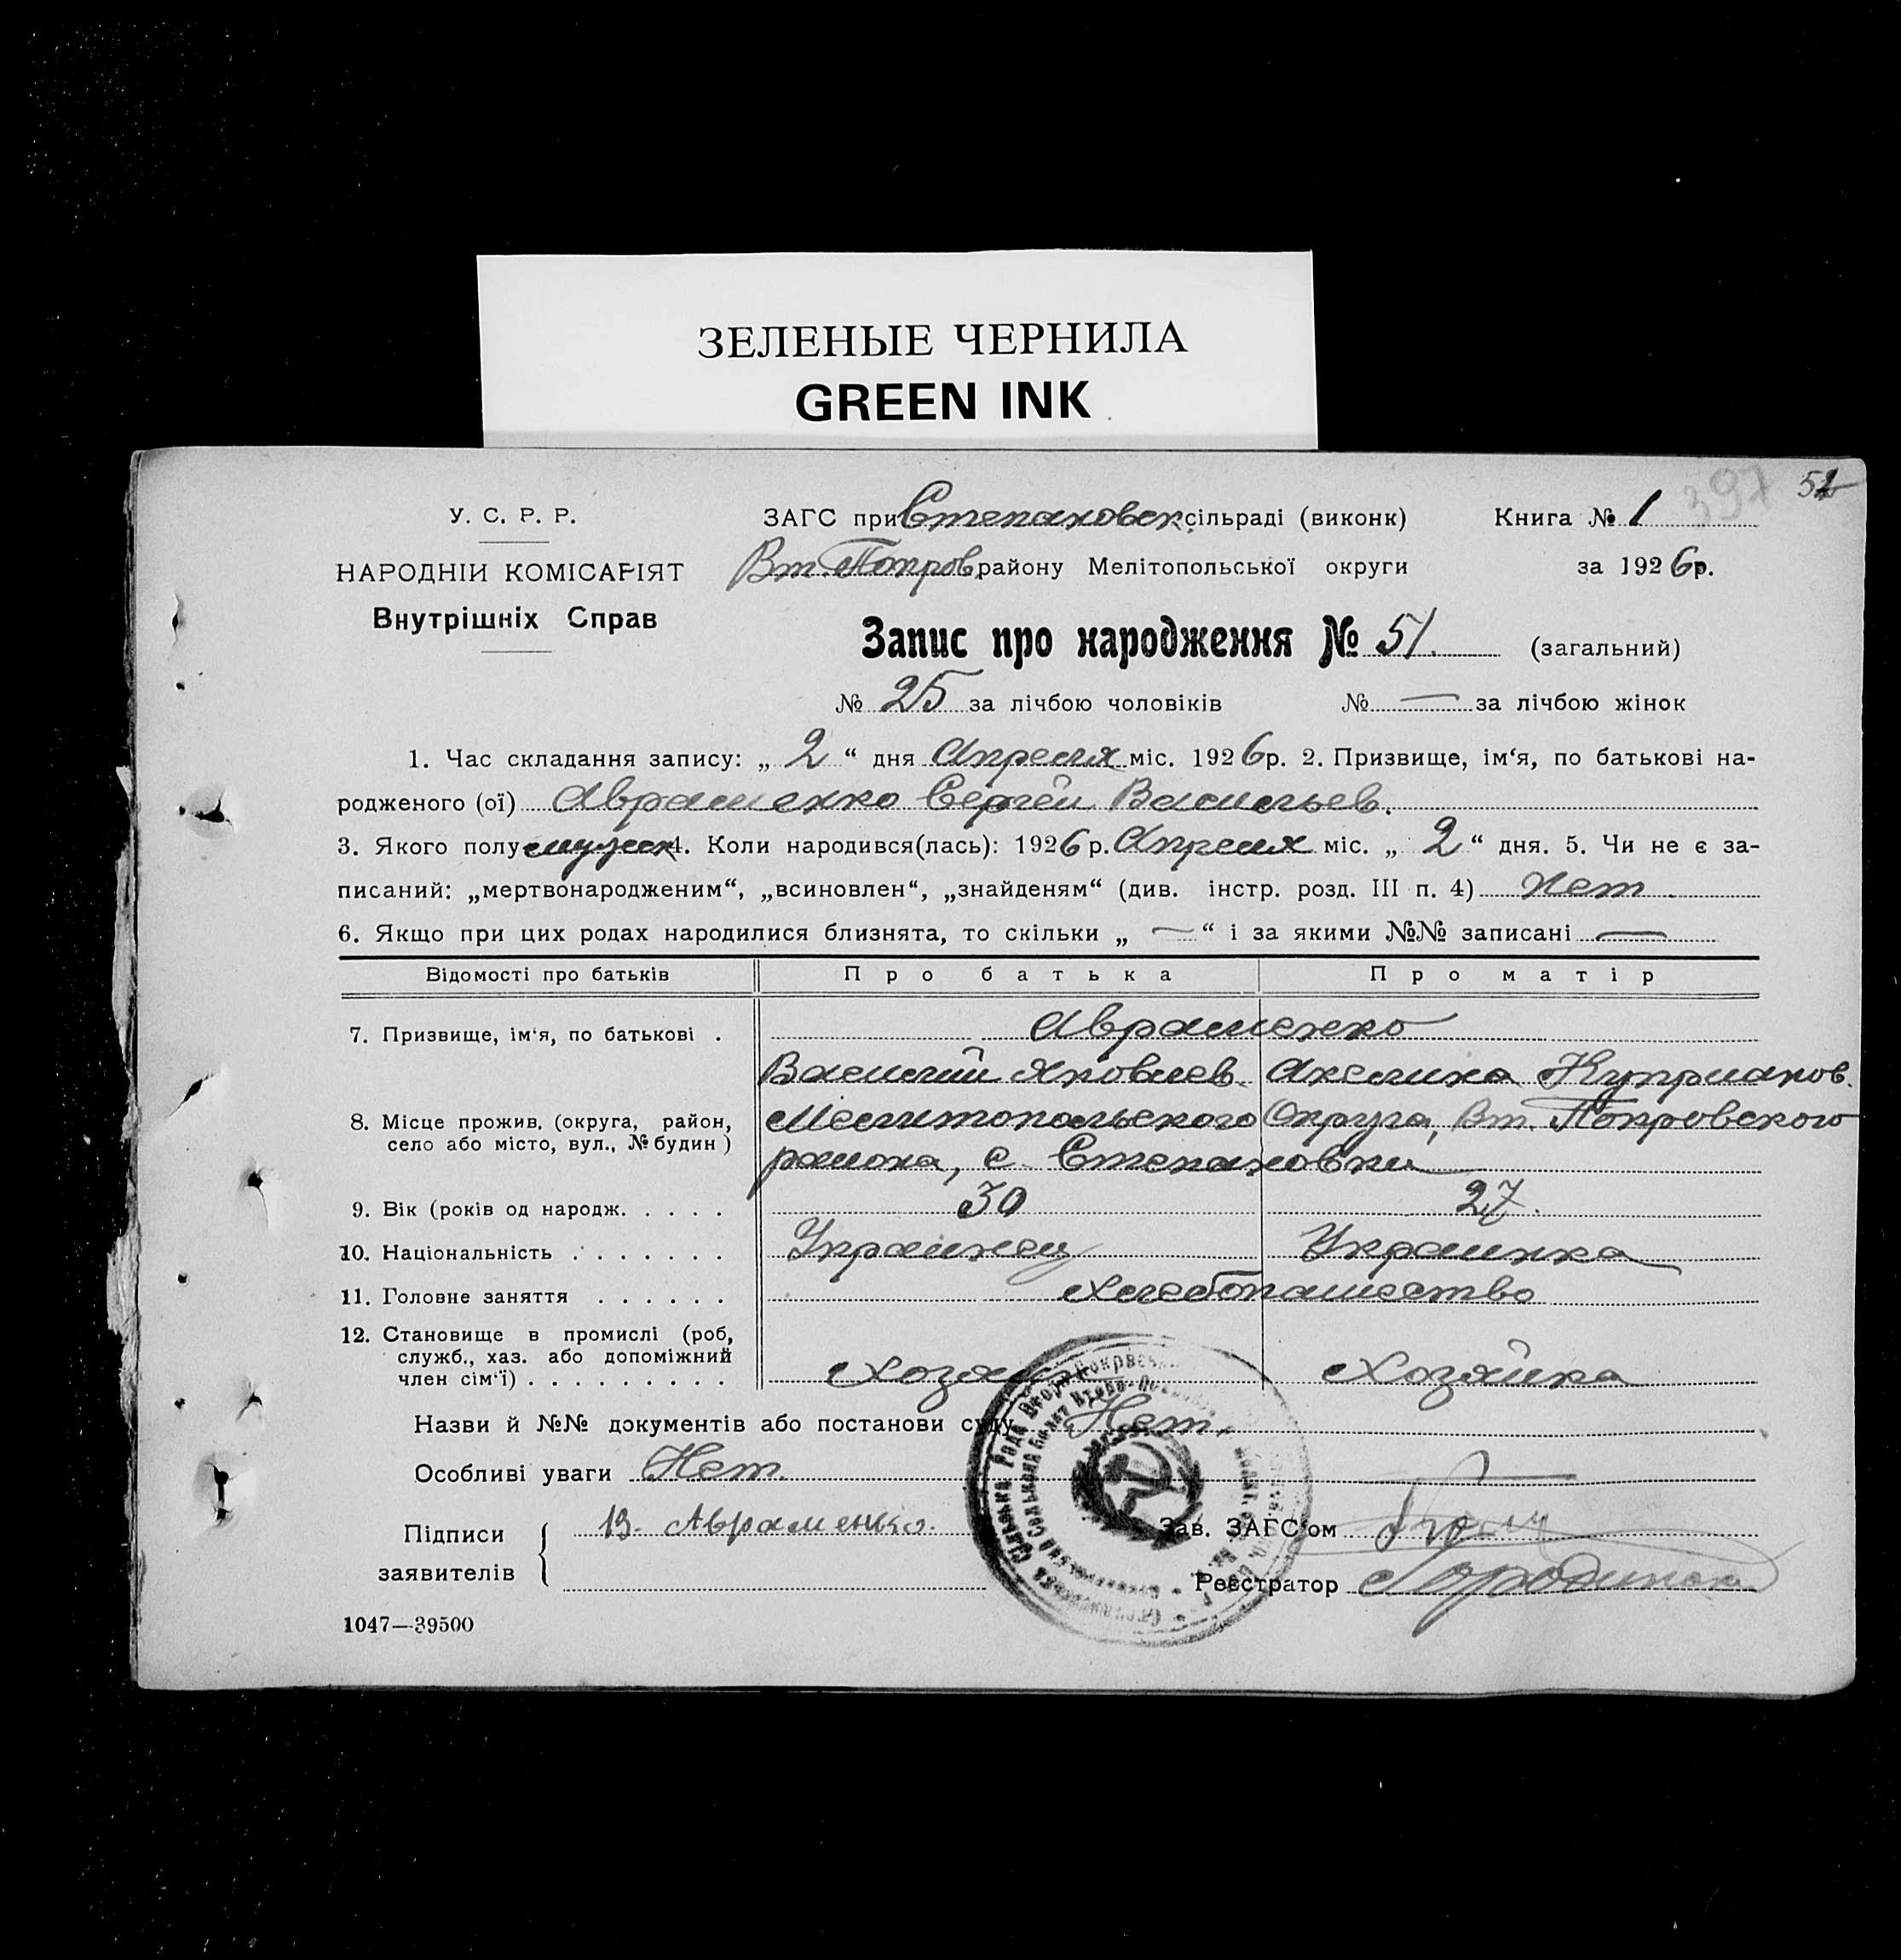 ЗЕЛЕНЫЕ ЧЕРНИЛА
GREEN INK
397 51
У. С. Р. Р. ЗАГС при Степановск. сільраді (виконк) Книга № 1
НАРОДНІЙ КОМІСАРІЯТ Вт. Покров. району Мелітопольської округи за 1926 р.
Внутрішніх Справ
Запис про народження № 51. (загальний)
№ 25 за лічбою чоловіків № — за лічбою жінок
1. Час складання запису: „ 2 “ дня Апреля міс. 1926 р. 2. Призвище, ім‘я, по батькові на-
родженого (ої) Авраменко Сергей Васильев.
3. Якого полу мужск 4. Коли народився(лась): 1926 р. Апреля міс. „ 2 “ дня. 5. Чи не є за-
писаний: „мертвонародженим“, „всиновлен“, „знайденям“ (див. інстр. розд. III п. 4) Нет
6. Якщо при цих родах народилися близнята, то скільки „ — “ і за якими №№ записані —
Відомості про батьків Про батька Про матір
7. Призвище, ім‘я, по батькові . Авраменко
Василий Яковлев. Акелина Куприанов.
8. Місце прожив. (округа, район, Мелитопольского Округа, Вт. Покровского
село або місто, вул., № будин) района, с. Степановки
9. Вік (років од народж. . . . . 30 27.
10. Національність . . . . . . . Украинец Украинка
11. Головне заняття . . . . . . Хлебопашество
12. Становище в промислі (роб,
служб., хаз. або допоміжний
член сім‘ї) . . . . . . . . . Хозяин Хозяйка
Назви й №№ документів або постанови суду Нет.
Особливі уваги Нет.
Підписи В. Авраменко. Зав. ЗАГС‘ом
заявителів Реєстратор
1047—39500